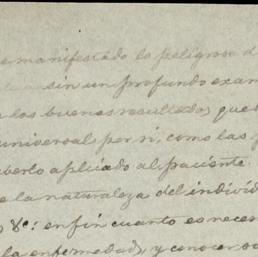 manifestado lo peligroso d
sin un profundo exam
los buenos resultados que
universal per si, como las
aplicado al paciente
e la naturaleza del individ
&c: en fin cuanto es neces
la enfermedad, y conocer